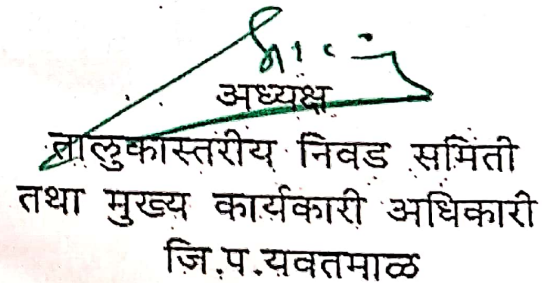 अध्यक्ष
तालुकास्तरीय निवड समिती
तथा मुख्य कार्यकारी अधिकारी
जि.प.यवतमाळ